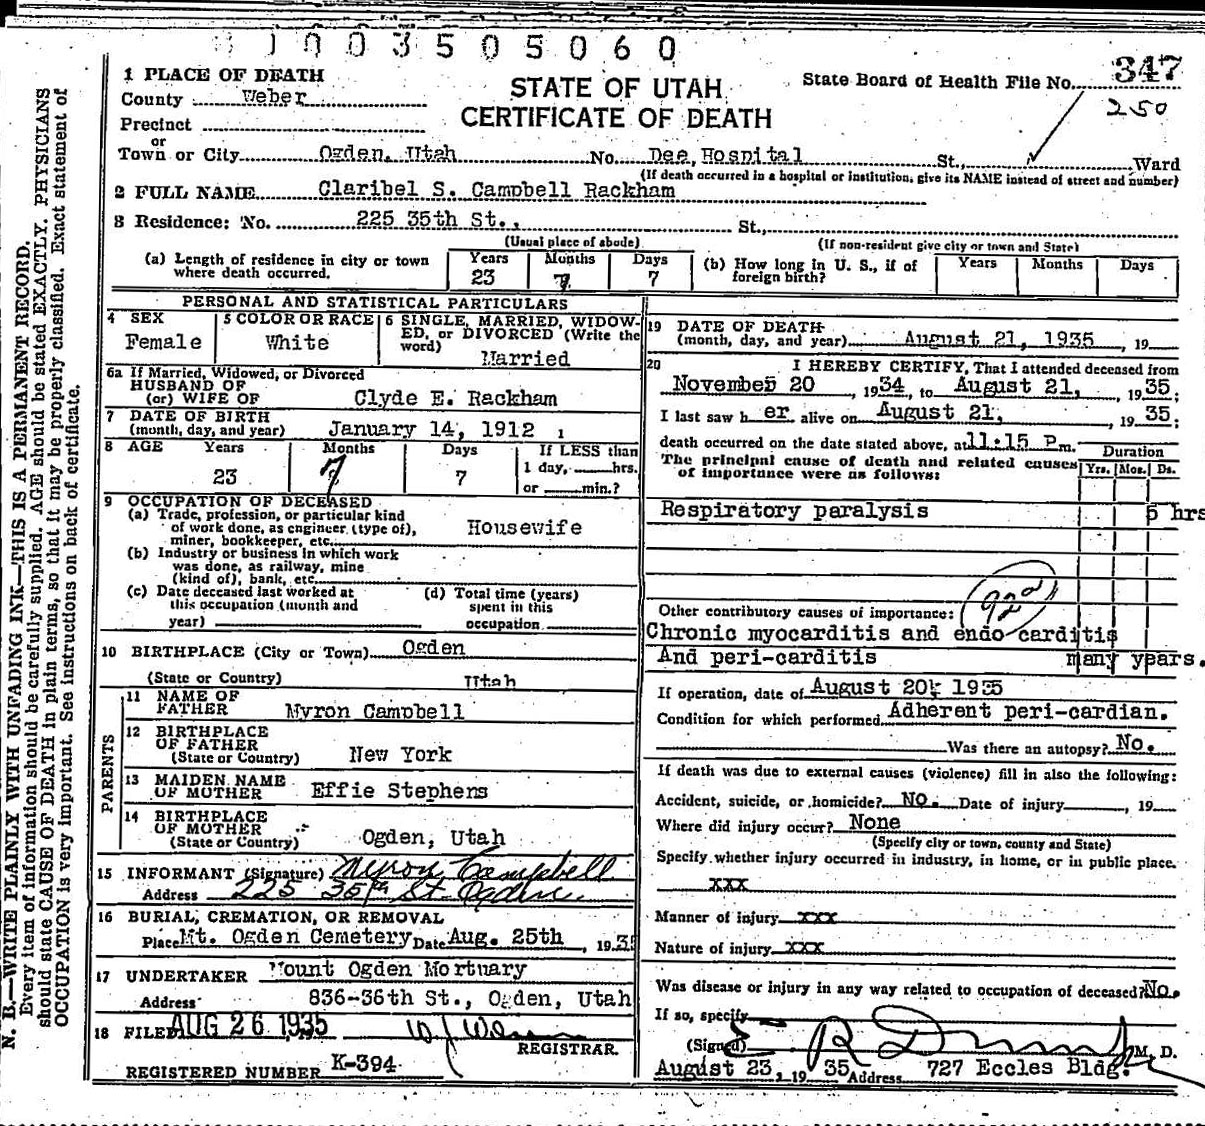 1003505060
1 PLACE OF DEATH
County Weber
Precinct
or
Town or City Ogden, Utah No. Dee, Hospital St., Ward
STATE OF UTAH
CERTIFICATE OF DEATH
State Board of Health File No. 347
250
(If death occurred in a hospital or institution, give its NAME instead of street and number)
2 FULL NAME Claribel S. Campbell Rackham
3 Residence: No. 225 35th St., St.,
(Usual place of abode) (If non-resident give city or town and State)
(a) Length of residence in city or town where death occurred. Years 23 Months 7 Days 7
(b) How long in U. S., if of foreign birth? Years Months Days
PERSONAL AND STATISTICAL PARTICULARS
4 SEX
Female
5 COLOR OR RACE
White
6 SINGLE, MARRIED, WIDOW-
ED, or DIVORCED (Write the
word)
Married
6a If Married, Widowed, or Divorced
HUSBAND OF
(or) WIFE OF Clyde E. Rackham
7 DATE OF BIRTH
(month, day, and year) January 14, 1912
8 AGE Years Months Days If LESS than
23 7 7 1 day, hrs.
or min.?
9 OCCUPATION OF DECEASED
(a) Trade, profession, or particular kind
of work done, as engineer (type of),
miner, bookkeeper, etc. Housewife
(b) Industry or business in which work
was done, as railway, mine
(kind of), bank, etc.
(c) Date deceased last worked at
this occupation (month and
year)
(d) Total time (years)
spent in this
occupation
10 BIRTHPLACE (City or Town) Ogden
(State or Country) Utah
PARENTS
11 NAME OF
FATHER Myron Campbell
12 BIRTHPLACE
OF FATHER
(State or Country) New York
13 MAIDEN NAME
OF MOTHER Effie Stephens
14 BIRTHPLACE
OF MOTHER
(State or Country) Ogden, Utah
15 INFORMANT (Signature) Myron Campbell
Address 225 35th St. Ogden
16 BURIAL, CREMATION, OR REMOVAL
Place Mt. Ogden Cemetery Date Aug. 25th, 1935
17 UNDERTAKER Mount Ogden Mortuary
Address 836-36th St., Ogden, Utah
18 FILED AUG 26 1935
REGISTRAR.
REGISTERED NUMBER K-394
19 DATE OF DEATH
(month, day, and year) August 21, 1935, 19
20 I HEREBY CERTIFY, That I attended deceased from
November 20, 1934, to August 21, 1935;
I last saw her alive on August 21, 1935;
death occurred on the date stated above, at 11:15 Pm.
The principal cause of death and related causes
of importance were as follows:
Duration
Yrs. Mos. Ds.
Respiratory paralysis 5 hrs
92a
Other contributory causes of importance:
Chronic myocarditis and endo carditis
And peri-carditis many years.
If operation, date of August 20, 1935
Condition for which performed Adherent peri-cardian.
Was there an autopsy? No.
If death was due to external causes (violence) fill in also the following:
Accident, suicide, or homicide? NO. Date of injury, 19
Where did injury occur? None
(Specify city or town, county and State)
Specify whether injury occurred in industry, in home, or in public place.
XXX
Manner of injury XXX
Nature of injury XXX
Was disease or injury in any way related to occupation of deceased? No.
If so, specify
(Signed) E R M. D.
August 23, 1935 Address 727 Eccles Bldg.
N. B.—WRITE PLAINLY WITH UNFADING INK—THIS IS A PERMANENT RECORD.
Every item of information should be carefully supplied. AGE should be stated EXACTLY. PHYSICIANS
should state CAUSE OF DEATH in plain terms, so that it may be properly classified. Exact statement of
OCCUPATION is very important. See instructions on back of certificate.